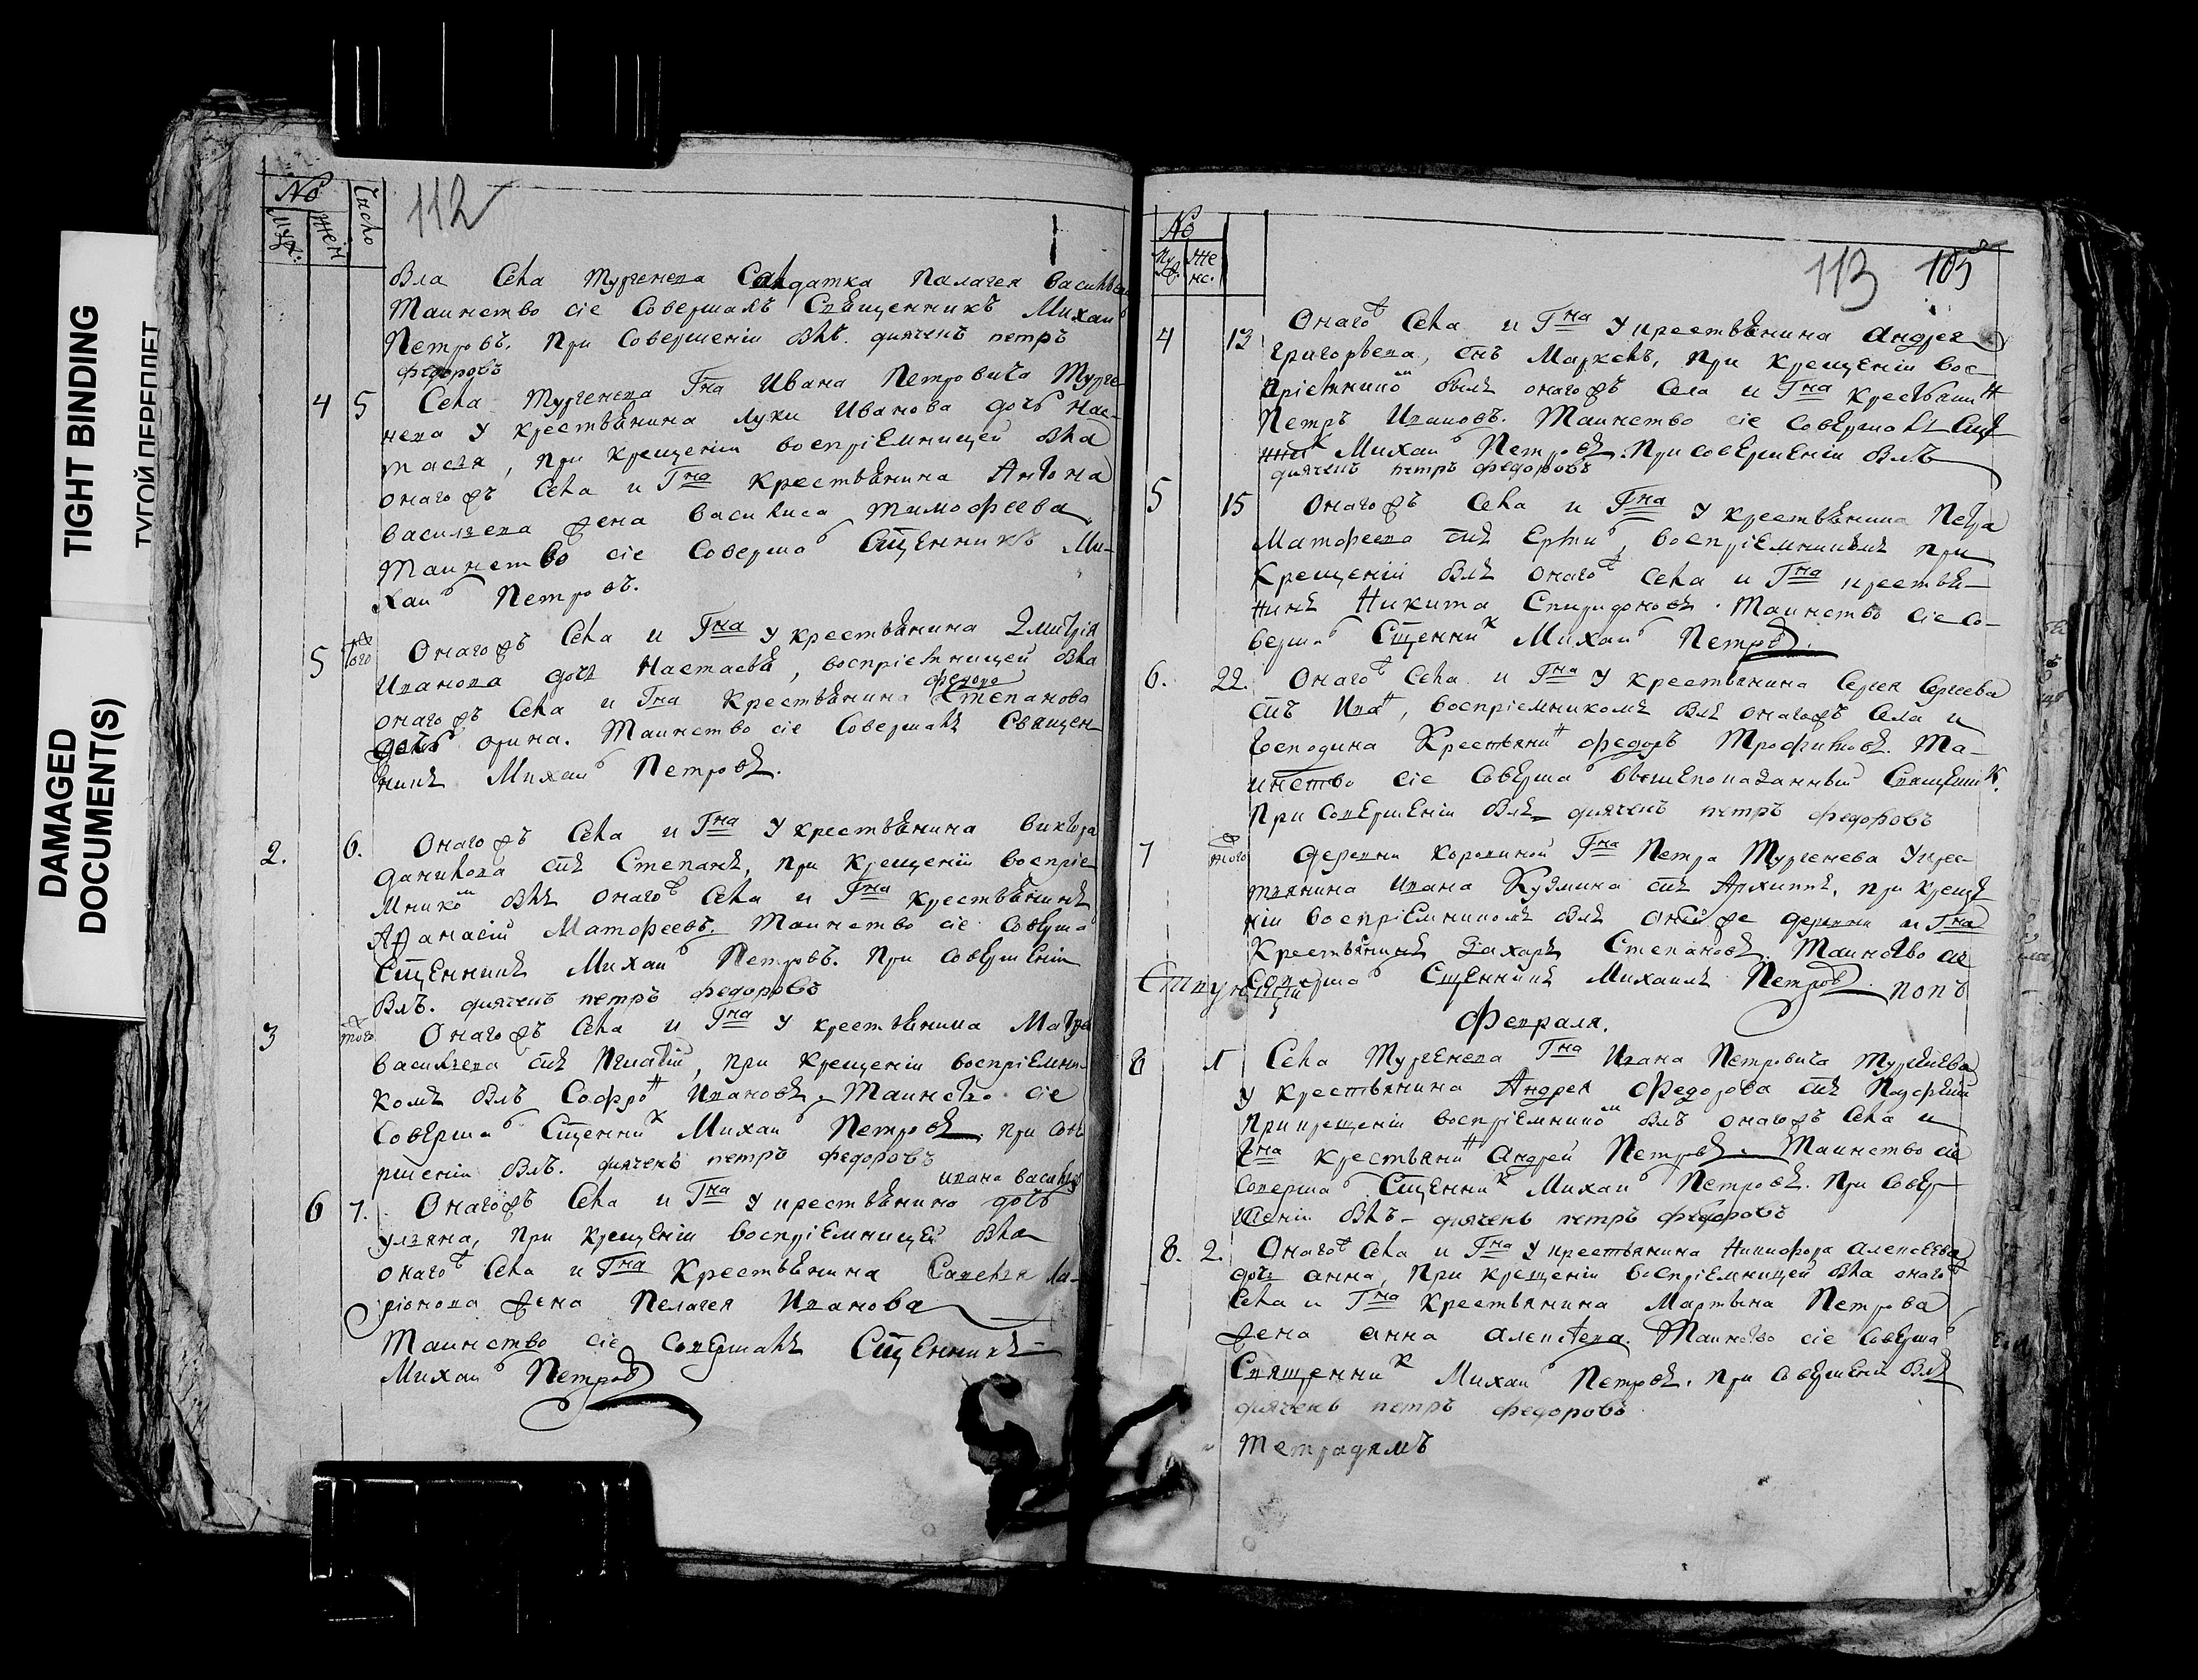 TIGHT BINDING
ТУГОЙ ПЕРЕПЛЕТ
DAMAGED
DOCUMENT(S)
№
Муж:
Жен
Число
112
Села Тургенева Салдатка Палагея
Таинство сіе Совершалъ Священникъ Михаи
Петровъ. При Совершеніи былъ. дьячекъ петръ
федоровъ
4 5 Села Тургенева Гна Ивана Петровича Турге
нева у крестьянина Луки Иванова дочь Нас-
тасья, при крещеніи воспріемницей была
онагожъ Села и Гна Крестьянина Антона
васильева жена василиса тимофеева
Таинство сіе Соверша Сщенникъ Ми-
хаи Петровъ.
5 того Онагожъ Села и Гна у крестьянина Дмитрія
Иванова дочь Настасья, воспріемницей была
федора
онагожъ Села и Гна Крестьянина Степанова
дочь Таинство сіе Совершалъ Священ
никъ Михаи Петровъ.
2. 6. Онагожъ Села и Гна у крестьянина виктора
данилова снъ Степанъ, при крещеніи воспріе
мнико былъ онаго Села и Гна крестьянинъ
Афанасій Матфеевъ. Таинство сіе Соверша
Сщенникъ Михаи Петровъ. При Совершеніи
Былъ. дьячекъ петръ федоровъ
3 того Онагожъ Села и Гна у крестьянина
васильева снъ Игнатій, при крещеніи воспріемни-
комъ былъ Софро Ивановъ. Таинство сіе
Соверша Сщенни Михаи Петровъ. при Сове
ршеніи Былъ. дьячекъ петръ федоровъ
ивана
6 7. Онагожъ Села и Гна у крестьянина дочь
ульяна, при крещеніи воспріемницей была
онаго Села и Гна Крестьянина Савелья Ла-
ріонова жена Пелагея Иванова
Таинство сіе Совершалъ Сщенникъ
Михаи Петровъ
№
Му ж.
Же нс.
113 105
4 13 Онаго Села и Гна у крестьянина Андрея
григорьева, снъ Маркелъ, при крещеніи вос
пріемнико былъ онагожъ Села и Гна крестьянин
Петръ Ивановъ. Таинство сіе Совершалъ Сще
нник Михаи Петровъ. При совершеніи Былъ
дьячекъ петръ федоровъ
5 15 Онагожъ Села и Гна у крестьянина Петра
Матфеева снъ воспріемникомъ при
Крещеніи былъ онаго Села и Гна крестья-
нинъ Никита Спиридоновъ. Таинство сіе Со-
верша Сщенник Михаи Петровъ.
6. 22. Онаго Села и Гна у крестьянина Сергея Сергеева
снъ Ива, воспріемникомъ былъ онагожъ Села и
Господина Крестьянин федоръ Трофимовъ. Та-
инство сіе Соверша вышепоказанный Священик.
При Совершеніи Былъ дьячекъ петръ федоровъ
7 того деревни коровиной Гна Петра Тургенева у крес-
тьянина Ивана Кузмина снъ Архипъ, при креще
ніи воспріемникомъ былъ оной же деревни и Гна
Крестьянинъ Захаръ Степановъ. Таинство сіе
Соверша Сщенникъ Михаилъ Петровъ. попъ
Февраля.
8 1 Села Тургенева Гна Ивана Петровича Тургенева
у крестьянина Андрея Федорова снъ
При крещеніи воспріемнико былъ онагожъ Села и
Гна крестьянин Андрей Петровъ. Таинство сіе
соверша Сщенник Михаи Петровъ. При Совер-
шеніи былъ - дьячекъ петръ федоровъ
8. 2. Онаго Села и Гна у крестьянина Никифора алексеева
дочь анна, При крещеніи воспріемницей была онаго
Села и Гна Крестьянина Мартына Петрова
жена анна алексеева. Таинство сіе Соверша
Священник Михаи Петровъ. При Совершеніи Былъ
дьячекъ петръ федоровъ
тетрадямъ